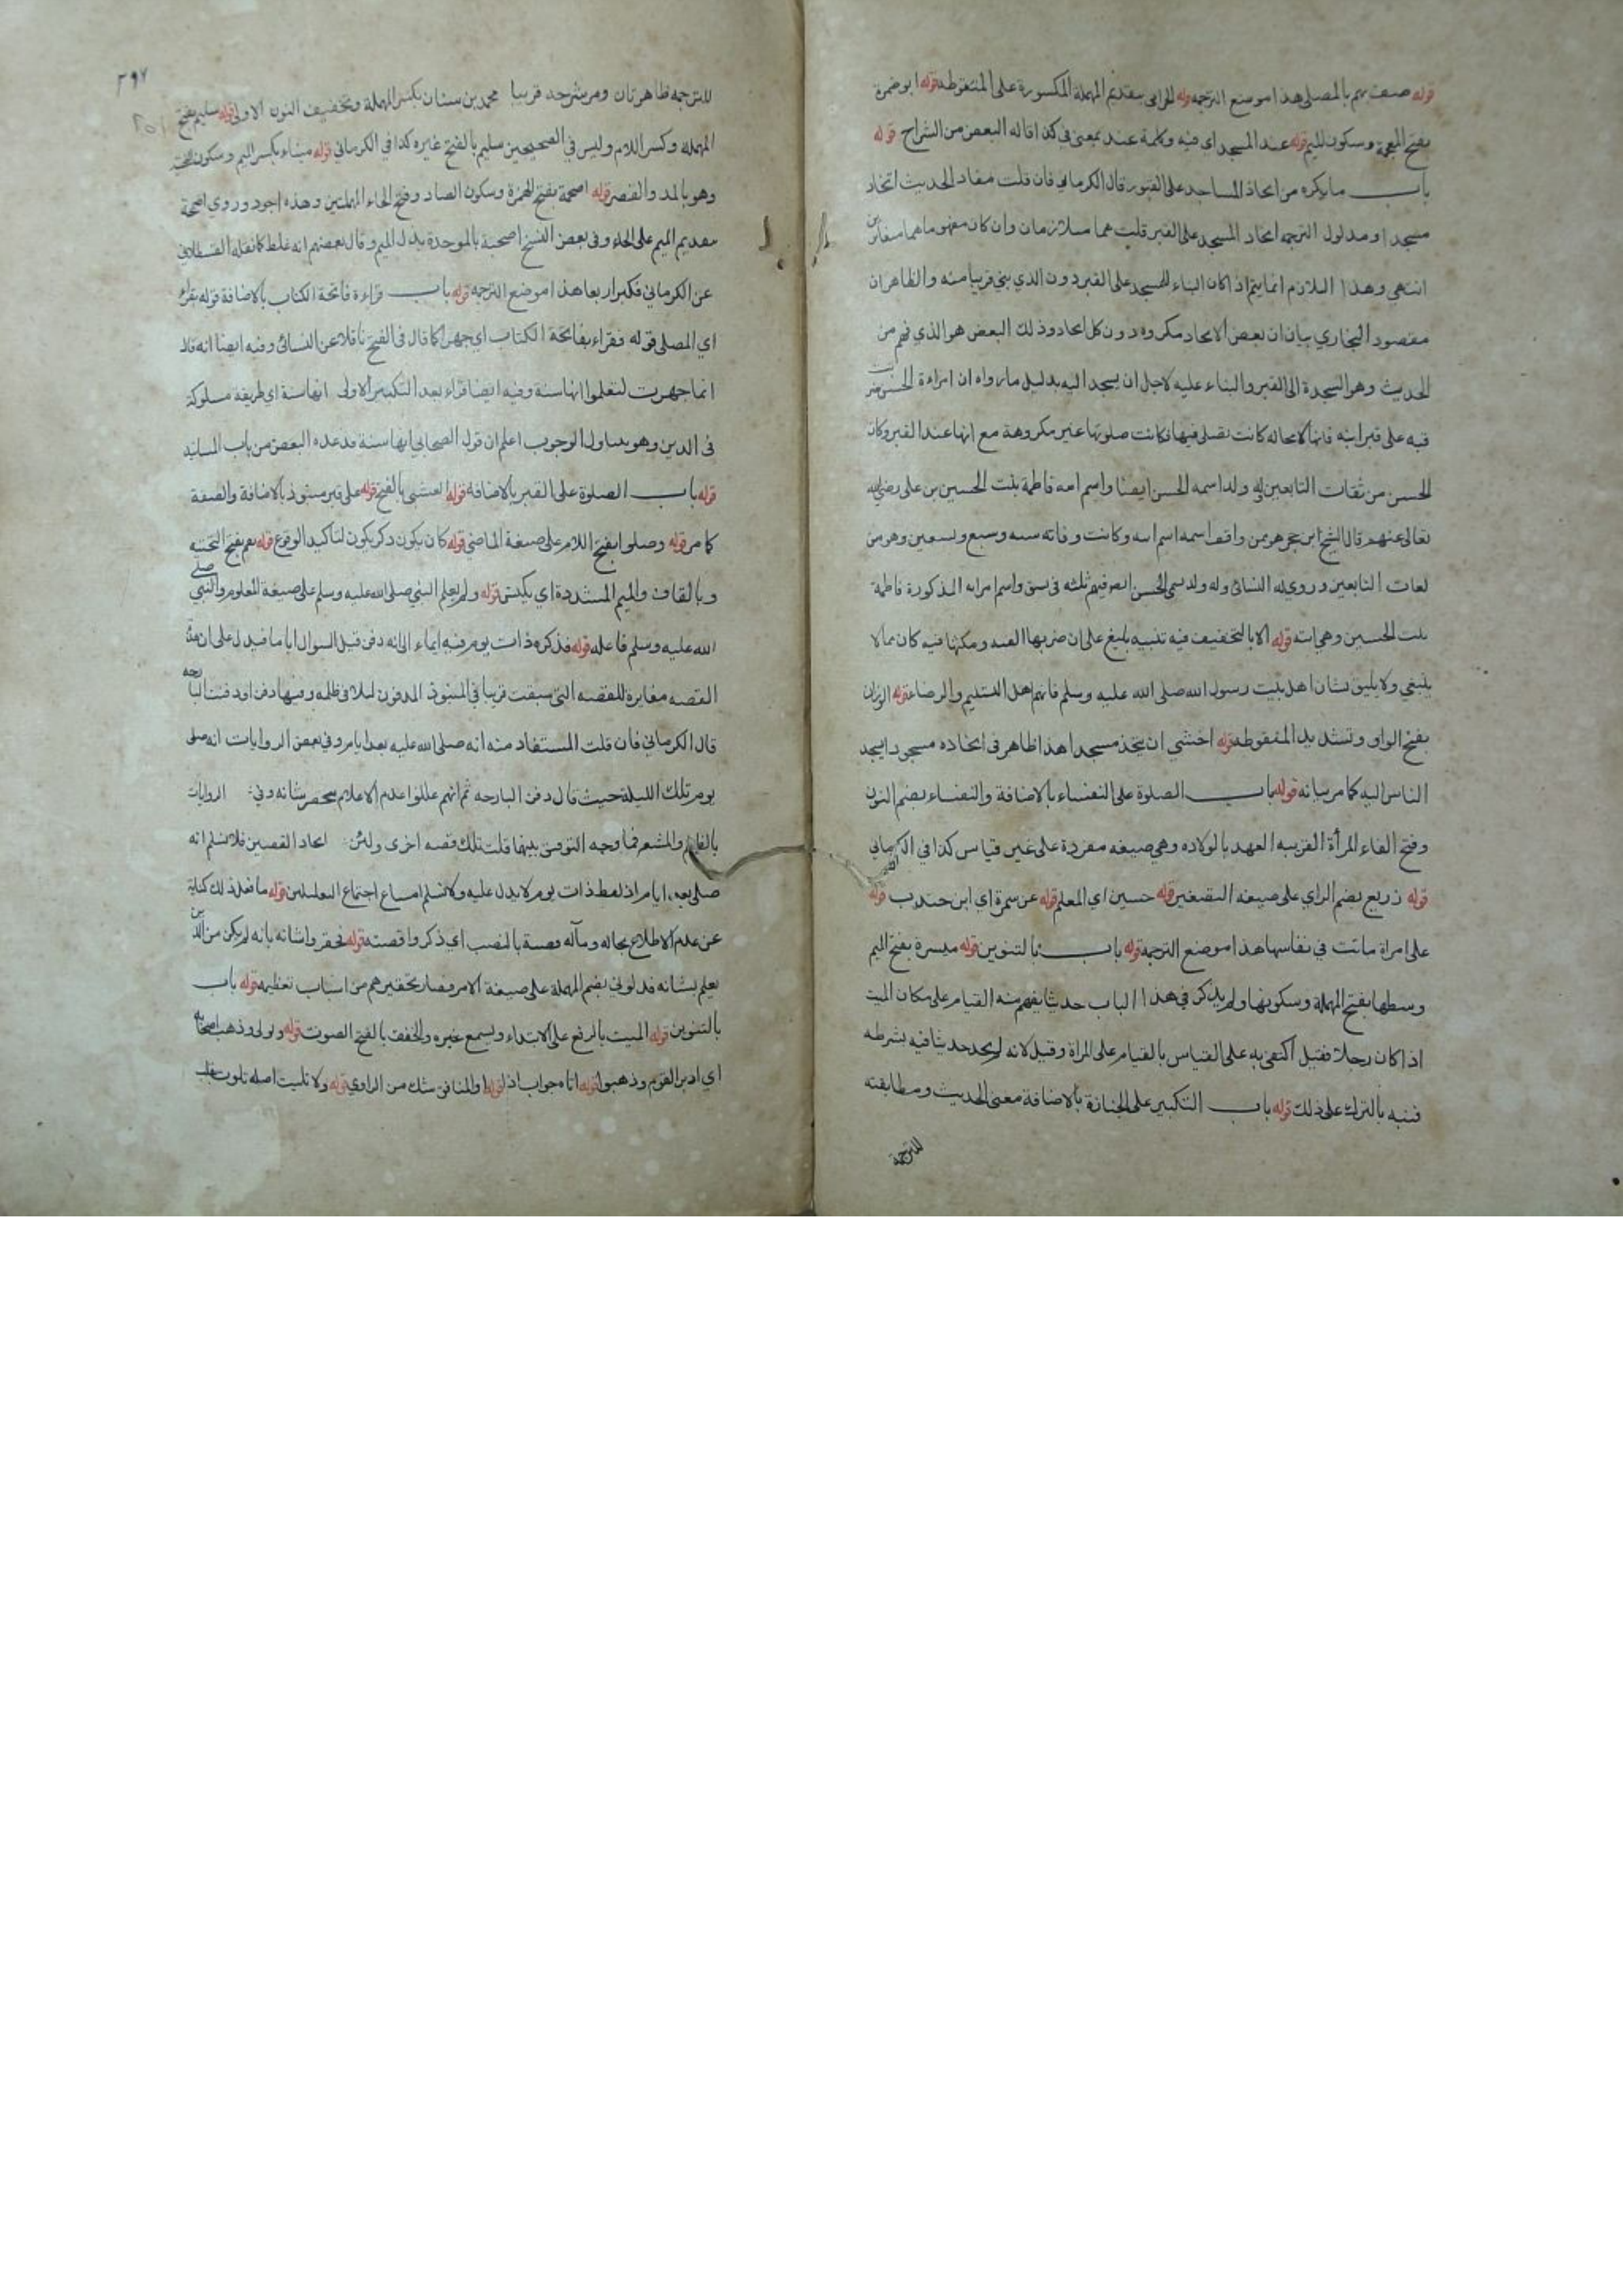 قوله صف بهم بالمصلى هذا موضع الترجمه قوله الحزامى بتقديم المهملة المكسورة على المنقوطه قوله ابو ضمرة
بفتح المعجمة وسكون الميم قوله عند المسجد اي فيه وكلمة عند بمعنى في كذا قاله البعض من الشراح قوله
باب ما يكره من اتخاذ المساجد على القبور قال الكرماني فان قلت مفاد الحديث اتخاذ
مسجدا ومدلول الترجمه اتخاذ المسجد على القبر قلت هما متلازمان وان كان مفهوماهما متغايرين
انتهي وهذا اللازم انما يتم اذا كان البناء للمسجد على القبر دون الذي بني قريبا منه والظاهر ان
مقصود البخاري بيان ان بعض الاتحاد مكروه دون كل اتحاد وذلك البعض هو الذي فهم من
الحديث وهو السجدة الى القبر والبناء عليه لاجل ان يسجد اليه بدليل ما رواه ان امراءة الحسن ضربت
قبه على قبر ابنه فانها لا محاله كانت تصلى فيها فكانت صلوتها غير مكروهة مع انها عند القبر وكان
الحسن من ثقات التابعين وله ولد اسمه الحسن ايضا واسم امه فاطمة بنت الحسين بن على رضى الله
تعالى عنهم قال الشيخ ابن حجر هو ممن وافق اسمه اسم ابيه وكانت وفاته سنه وسبع وتسعين وهو من
ثقات التابعين وروى له النسائى وله ولد يسمى الحسن ايضا فهم ثلثه في نسق واسم امراته المذكورة فاطمة
بنت الحسين وهي ابنة قوله الا بالتخفيف فيه تنبيه بليغ على ان ضربها القبه ومكثها فيه كان مما لا
ينبغي ولا يليق بشان اهل بيت رسول الله صلى الله عليه وسلم فانهم اهل التسليم والرضا قوله الوزان
بفتح الواو وتشديد المنقوطه قوله اخشى ان يتخذ مسجدا هذا ظاهر فى اتخاذه مسجودا يسجد
الناس اليه كما مر بيانه قوله باب الصلوة على النفساء بالاضافة والنفساء بضم النون
وفتح الفاء المرأة القريبه العهد بالولاده وهي صيغه مفردة على غير قياس كذا في الكرماني
قوله زريع بضم الزاي على صيغه التصغير قوله حسين اي المعلم قوله عن سمرة اي ابن جندب قوله
على امراة ماتت في نفاسها هذا موضع الترجمة قوله باب بالتنوين قوله ميسرة بفتح الميم
وسطها بفتح المهملة وسكونها ولم يذكر في هذا الباب حديثا يفهم منه القيام على مكان الميت
اذا كان رجلا فقيل اكتفى به على القياس بالقيام على المراة وقيل لانه لم يجد حديثا فيه بشرطه
فنبه بالترك على ذلك قوله باب التكبير على الجنازة بالاضافة معنى الحديث ومطابقته
للترجمة
٣٩٧
للترجمه ظاهرتان ومر شرحه قريبا محمد بن سنان بكسر المهملة وتخفيف النون الاولى قوله سليم بفتح
المهملة وكسر اللام وليس في الصحيحين سليم بالفتح غيره كذا في الكرماني قوله ميناء بكسر الميم وسكون التحتية
وهو بالمد والقصر قوله اصحمة بفتح الهمزة وسكون الصاد وفتح الحاء المهملتين وهذه اجود وروي اصمحة
بتقديم الميم على الحاء وفى بعض النسخ اصحبة بالموحدة بدل الميم وقال بعضهم انه غلط كما نقله القسطلاني
عن الكرماني فكبر اربعا هذا موضع الترجمه قوله باب قراءة فاتحة الكتاب بالاضافة قوله يقراء
اي المصلى قوله فقراء بفاتحة الكتاب اي جهرا كما قال فى الفتح ناقلا عن النسائى وفيه ايضا انه قال
انما جهرت لتعلموا انها سنة وفيه ايضا قراء بعد التكبير الاولى انها سنة اي طريقة مسلوكة
فى الدين وهو يتناول الوجوب اعلم ان قول الصحابي انها سنة قد عده البعض من باب المسانيد
قوله باب الصلوة على القبر بالاضافه قوله بالفتح قوله على قبر منبوذ بالاضافة والصفة
كما مر قوله وصلوا بفتح اللام على صيغة الماضي قوله كان يكون ذكر يكون لتاكيد الوقوع قوله يقم بفتح التحتيه
وبالقاف والميم المشددة اي يكنس قوله ولم يعلم النبي صلى الله عليه وسلم على صيغة المعلوم والنبي صلى
الله عليه وسلم فاعله قوله فذكره ذات يوم فيه ايماء الى انه دفن قبل السوال اياما فيدل على ان هذه
القصه مغايرة للقصه التى سبقت قريبا في المنبوذ المدفون ليلا فى ظلمه وفيها دفن او دفنت البارحه
قال الكرماني فان قلت المستفاد منه انه صلى الله عليه بعد ايام وفي بعض الروايات انه صلى
يوم تلك الليلة حيث قال دفن البارحه ثم انهم عللوا عدم الاعلام بحقر شانه وفي الروايات
بالظلم والمشعر فما وجه التوفيق بينهما قلت تلك قصه اخرى ولئن اتحاد القصتين فلا نسلم انه
صلى بعد ايام اذ لفظ ذات يوم لا يدل عليه ولا نسلم امتناع اجتماع التعليلين قوله ما فعل ذلك كناية
عن عدم الاطلاع بحاله ومآله قصته بالنصب اي ذكروا قصته قوله فحقروا شانه بانه لم يكن من الذين
يعلم بشانه فدلوني بضم المهملة على صيغة الامر فصار تحقيرهم من اسباب تعظيمه قوله باب
بالتنوين قوله الميت بالرفع على الابتداء ويسمع غيره والخفق بالفتح الصوت قوله وتولى وذهب اصحابه
اي ادبر القوم وذهبوا قوله اتاه جواب اذا قوله او المنافق شك من الراوي قوله ولا تليت اصله تلوت قلب